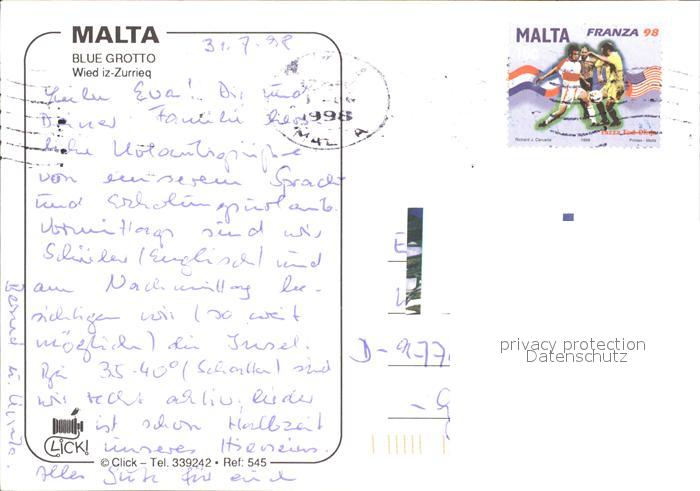 MALTA
BLUE GROTTO
Wied iz-Zurrieq
31.7.98
Liebe Eva! Dir und
Deiner Familie herz-
liche Urlaubsgrüße
von unserem Sprach-
und Erholungsurlaub.
Vormittags sind wir
Schüler (Englisch) und
am Nachmittag be-
sichtigen wir (so weit
möglich) die Insel.
Bei 35-40° (Schatten) sind
wir recht aktiv. Leider
ist schon Halbzeit
unseres Hierseins.
Alles Gute für euch
CLICK!
© Click – Tel. 339242 • Ref: 545
1998
MALTA
MALTA FRANZA 98
Richard J. Caruana 1998 Printex - Malta
D-977
privacy protection
Datenschutz